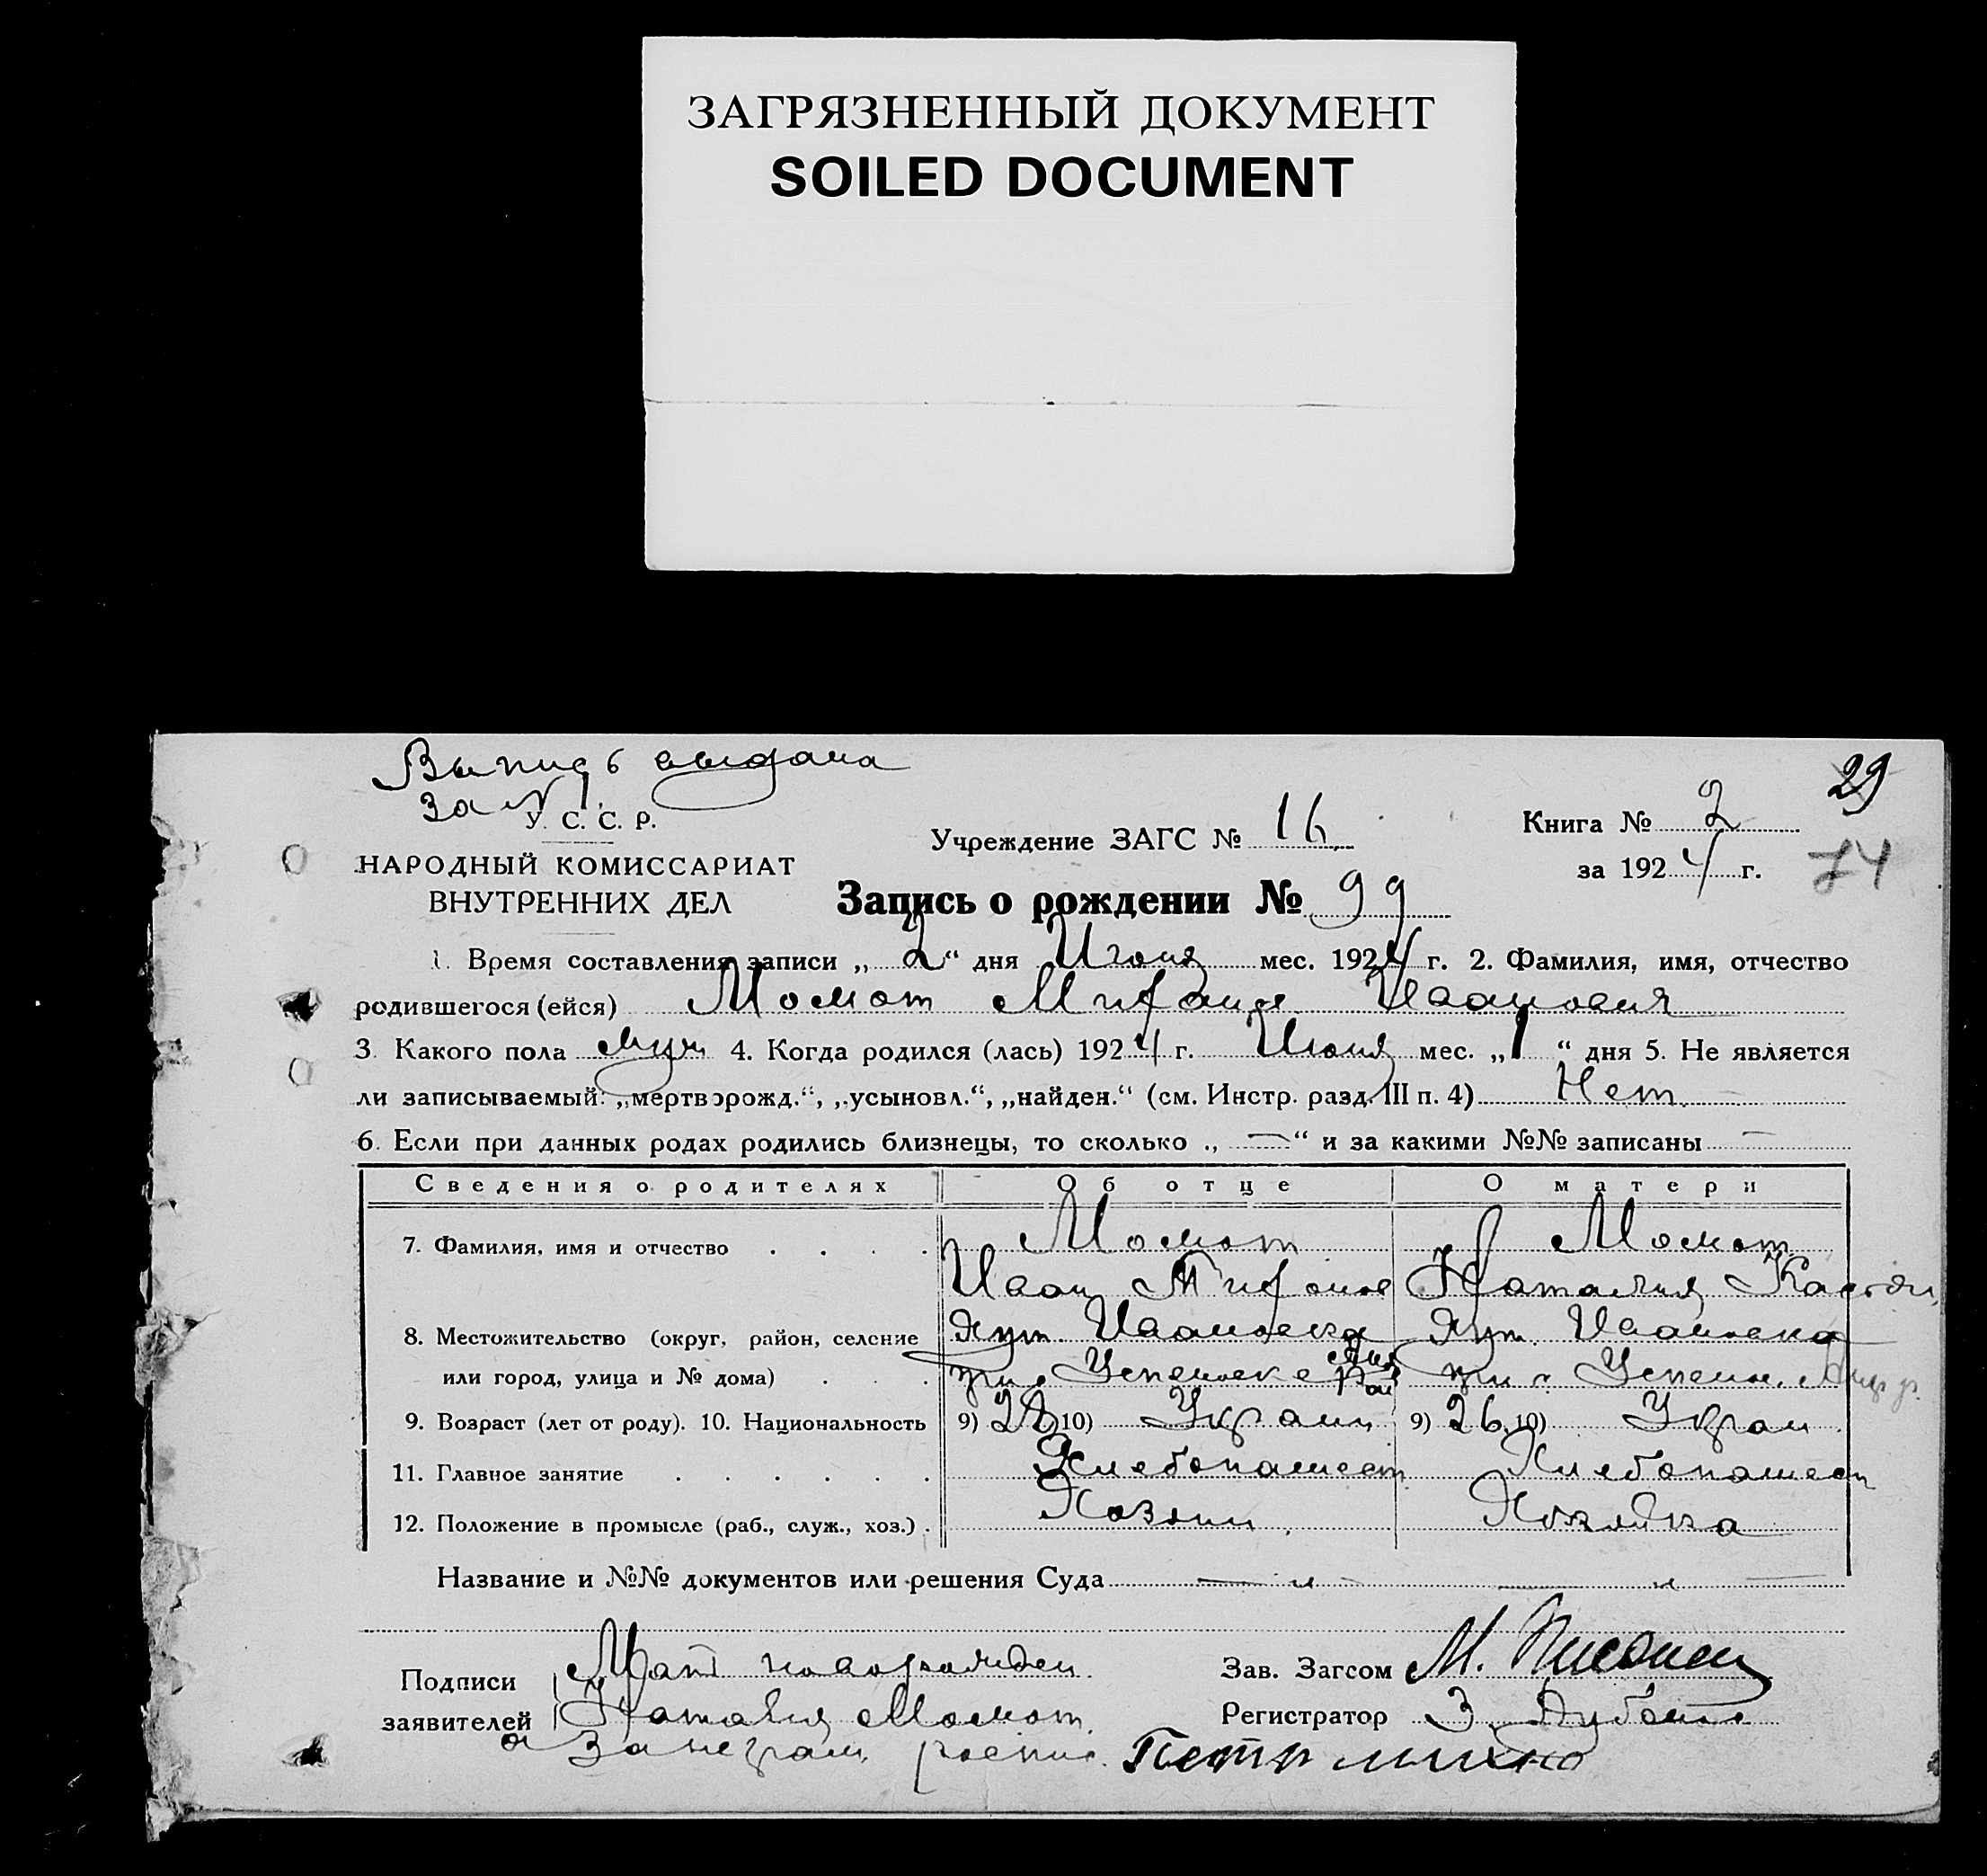 ЗАГРЯЗНЕННЫЙ ДОКУМЕНТ
SOILED DOCUMENT
Выпись выдана
за №1.
29
74
У. С. С. Р.
НАРОДНЫЙ КОМИССАРИАТ
ВНУТРЕННИХ ДЕЛ
Учреждение ЗАГС № 16
Книга № 2
за 1924 г.
Запись о рождении № 99
1. Время составления записи „ 2 “ дня Июня мес. 1924 г. 2. Фамилия, имя, отчество
родившегося (ейся) Момот Ивановия
3. Какого пола муж 4. Когда родился (лась) 1924 г. Июня мес. „ 1 “ дня 5. Не является
ли записываемый: „мертворожд.“, „усыновл.“, „найден.“ (см. Инстр. разд. III п. 4) Нет
6. Если при данных родах родились близнецы, то сколько „ — “ и за какими №№ записаны —
Сведения о родителях Об отце О матери
7. Фамилия, имя и отчество Момот Момот
Иван Наталия
8. Местожительство (округ, район, селение Хут. Ивановка Хут. Ивановка
или город, улица и № дома)
9. Возраст (лет от роду). 10. Национальность 9) 28 10) Украин 9) 26 10) Украи
11. Главное занятие Хлебопашест Хлебопашест
12. Положение в промысле (раб., служ., хоз.) Хозяин Хозяйка
Название и №№ документов или решения Суда — „ — — „ —
Подписи Мать новорожден
заявителей Наталия Момот
а за неграм. роспис. Петр
Зав. Загсом М.
Регистратор З.